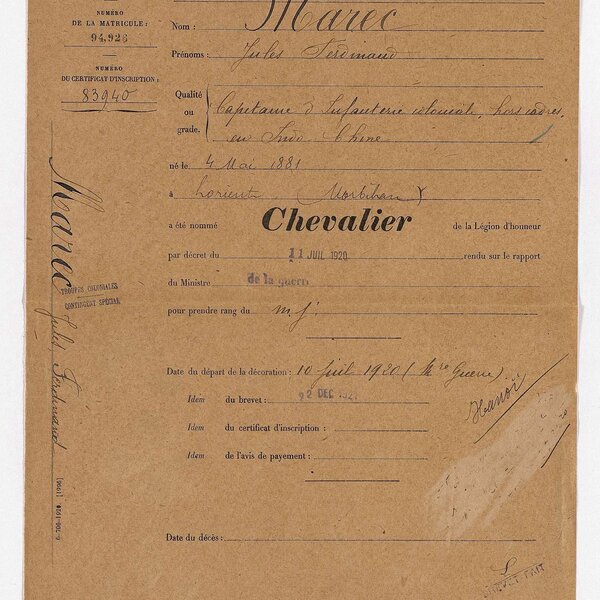 NUMÉRO
DE LA MATRICULE:
94.926
NUMÉRO
DU CERTIFICAT D'INSCRIPTION:
83940
Nom: Marec
Prénoms: Jules Ferdinand
Qualité ou grade. Capitaine d'Infanterie coloniale, hors cadres,
en Indo Chine
né le 4 Mai 1881
à Lorient (Morbihan)
a été nommé Chevalier de la Légion d'honneur
par décret du 11 JUIL 1920 rendu sur le rapport
du Ministre de la guerre
pour prendre rang du m. j.
Date du départ de la décoration: 10 Juil 1920 (Mre Guerre)
Idem du brevet: 22 DEC 192
Hanoï
Idem du certificat d'inscription:
Idem de l'avis de payement:
Date du décès:
Marec Jules Ferdinand
TROUPES COLONIALES
CONTINGENT SPÉCIAL
6-706-1920 [1096]
BREVET FAIT